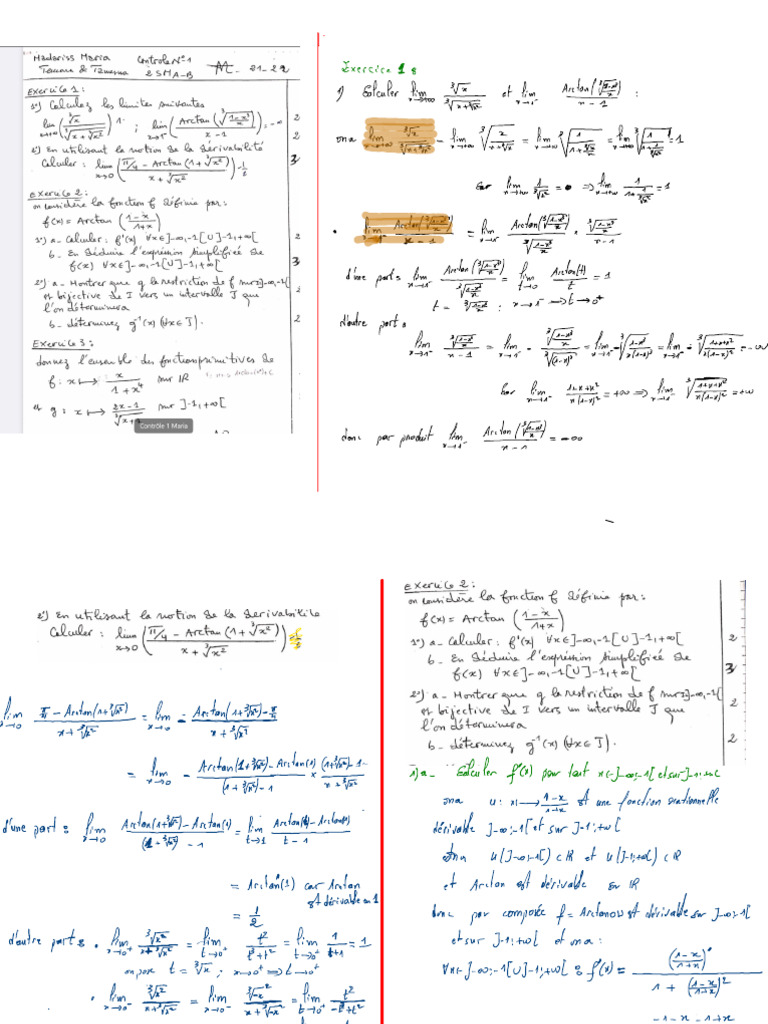 Hadariss Maria Controle N°1 21-22
2SMA-B
Exercice 1:
1°) Calculez les limites suivantes
lim x→+∞ ∛x / ∛(x+∛x²) = 1 ; lim x→1⁻ (Arctan(∛((1-x³)/x)) / (x-1)) = -∞ 2
2
2°) En utilisant la notion de la dérivabilité
Calculer : lim x→0 (π/4 - Arctan(1+∛x²)) / (x+∛x²) = -1/2 3
Exercice 2:
on considère la fonction f définie par:
f(x) = Arctan((1-x)/(1+x))
1°) a - Calculer: f'(x) ∀x∈]-∞,-1[∪]-1,+∞[ 2
b - En déduire l'expression simplifiée de
f(x) ∀x∈]-∞,-1[∪]-1,+∞[ 3
2°) a - Montrer que g la restriction de f sur I=]-∞,-1[
est bijective de I vers un intervalle J que 2
l'on déterminera
b - déterminez g⁻¹(x) (∀x∈J). 2
Exercice 3:
donnez l'ensemble des fonctions primitives de
f: x ⟼ x/(1+x⁴) sur IR
et g: x ⟼ sur ]-1,+∞[
Contrôle 1 Maria
Exercice 1 :
1) Calculer lim x→+∞ ∛x / ∛(x+∛x²) et lim x→1⁻ Arctan(∛((1-x³)/x)) / (x-1) :
ona lim x→+∞ ∛x / ∛(x+∛x²) = lim x→+∞ ∛(x/(x+∛x²)) = lim x→+∞ = 1
car lim x→+∞ = 0 ⟹ lim x→+∞ = 1
• lim x→1⁻ Arctan(∛((1-x³)/x)) / (x-1) = lim x→1⁻ Arctan(∛((1-x³)/x)) / ∛((1-x³)/x) × ∛((1-x³)/x) / (x-1)
d'une part : lim x→1⁻ Arctan(∛((1-x³)/x)) / ∛((1-x³)/x) = lim t→0 Arctan(t)/t = 1
t = ∛((1-x³)/x) ; x→1⁻ ⟹ t→0⁺
d'autre part :
lim x→1⁻ ∛((1-x³)/x) / (x-1) = lim x→1⁻ - ∛((1-x³)/x) / ∛(1-x)³ = lim x→1⁻ - ∛((1-x³)/(x(1-x)³)) = lim x→1⁻ - ∛((1+x+x²)/(x(1-x)²)) = -∞
car lim x→1⁻ (1+x+x²)/(x(1-x)²) = +∞ ⟹ lim x→1⁻ ∛((1+x+x²)/(x(1-x)²)) = +∞
donc par produit lim x→1⁻ Arctan(∛((1-x³)/x)) / (x-1) = -∞
2°) En utilisant la notion de la derivabilité
Calculer : lim x→0 (π/4 - Arctan(1+∛x²)) / (x+∛x²) = -1/2
lim x→0 (π/4 - Arctan(1+∛x²)) / (x+∛x²) = lim x→0 - (Arctan(1+∛x²) - π/4) / (x+∛x²)
= lim x→0 - (Arctan(1+∛x²) - Arctan(1)) / ((1+∛x²)-1) × ((1+∛x²)-1) / (x+∛x²)
d'une part : lim x→0 (Arctan(1+∛x²) - Arctan(1)) / ((1+∛x²)-1) = lim t→1 (Arctan(t) - Arctan(1)) / (t-1)
= Arctan'(1) car Arctan
est dérivable en 1
= 1/2
d'autre part : • lim x→0⁺ ∛x² / (x+∛x²) = lim t→0⁺ t²/(t³+t²) = lim t→0⁺ 1/(t+1) = 1
on pose t = ∛x ; x→0⁺ ⟹ t→0⁺
• lim x→0⁻ ∛x² / (x+∛x²) = lim x→0⁻ ∛(-x)² / (x+∛(-x)²) = lim t→0⁺ t²/(-t³+t²)
Exercice 2:
on considère la fonction f définie par:
f(x) = Arctan((1-x)/(1+x))
1°) a - Calculer: f'(x) ∀x∈]-∞,-1[∪]-1,+∞[ 2
b - En déduire l'expression simplifiée de
f(x) ∀x∈]-∞,-1[∪]-1,+∞[ 3
2°) a - Montrer que g la restriction de f sur I=]-∞,-1[
est bijective de I vers un intervalle J que 2
l'on déterminera
b - déterminez g⁻¹(x) (∀x∈J). 2
1) a - Calculer f'(x) pour tout x∈]-∞;-1[ et sur ]-1;+∞[
ona u: x ⟼ (1-x)/(1+x) est une fonction rationnelle
dérivable ]-∞;-1[ et sur ]-1;+∞[
et ona u(]-∞;-1[) ⊂ IR et u(]-1;+∞[) ⊂ IR
et Arctan est dérivable sur IR
donc par composée f = Arctanou est dérivable sur ]-∞;-1[
et sur ]-1;+∞[ et ona :
∀x∈]-∞;-1[∪]-1;+∞[ : f'(x) = ((1-x)/(1+x))' / (1 + ((1-x)/(1+x))²)
-1-x-1+x